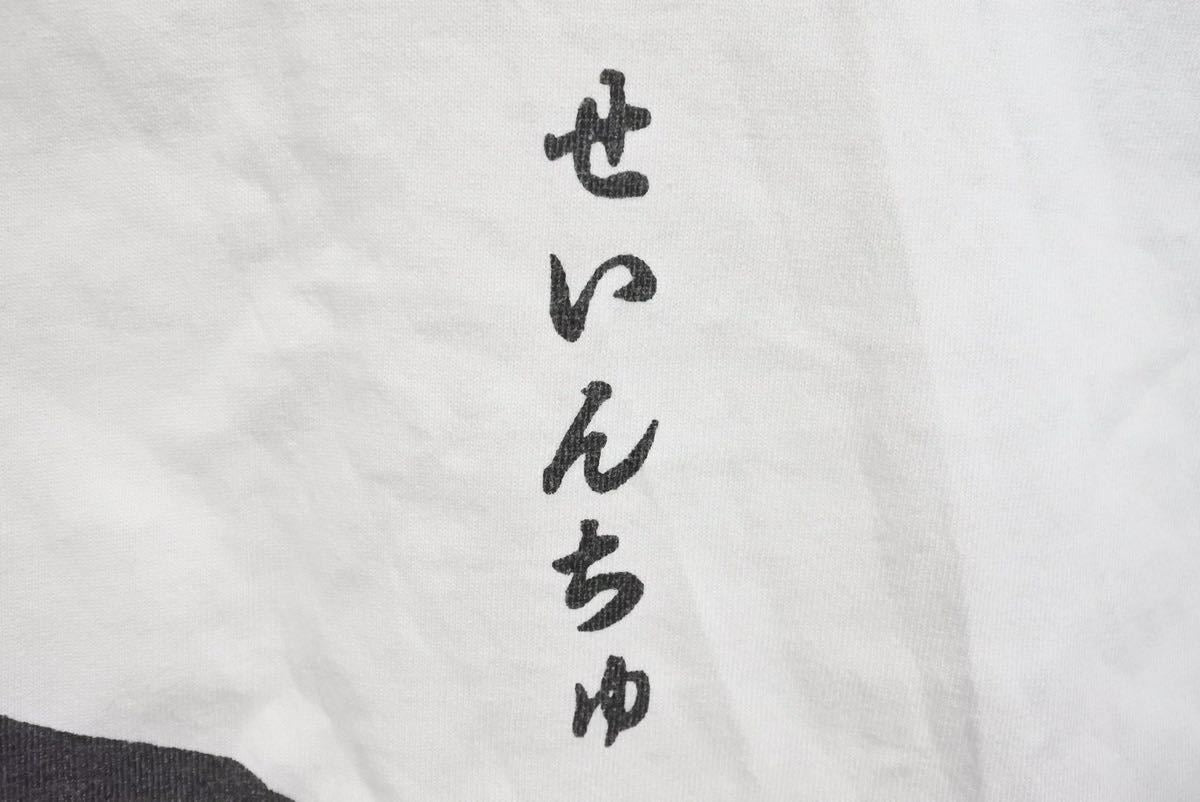 せいんちゅ